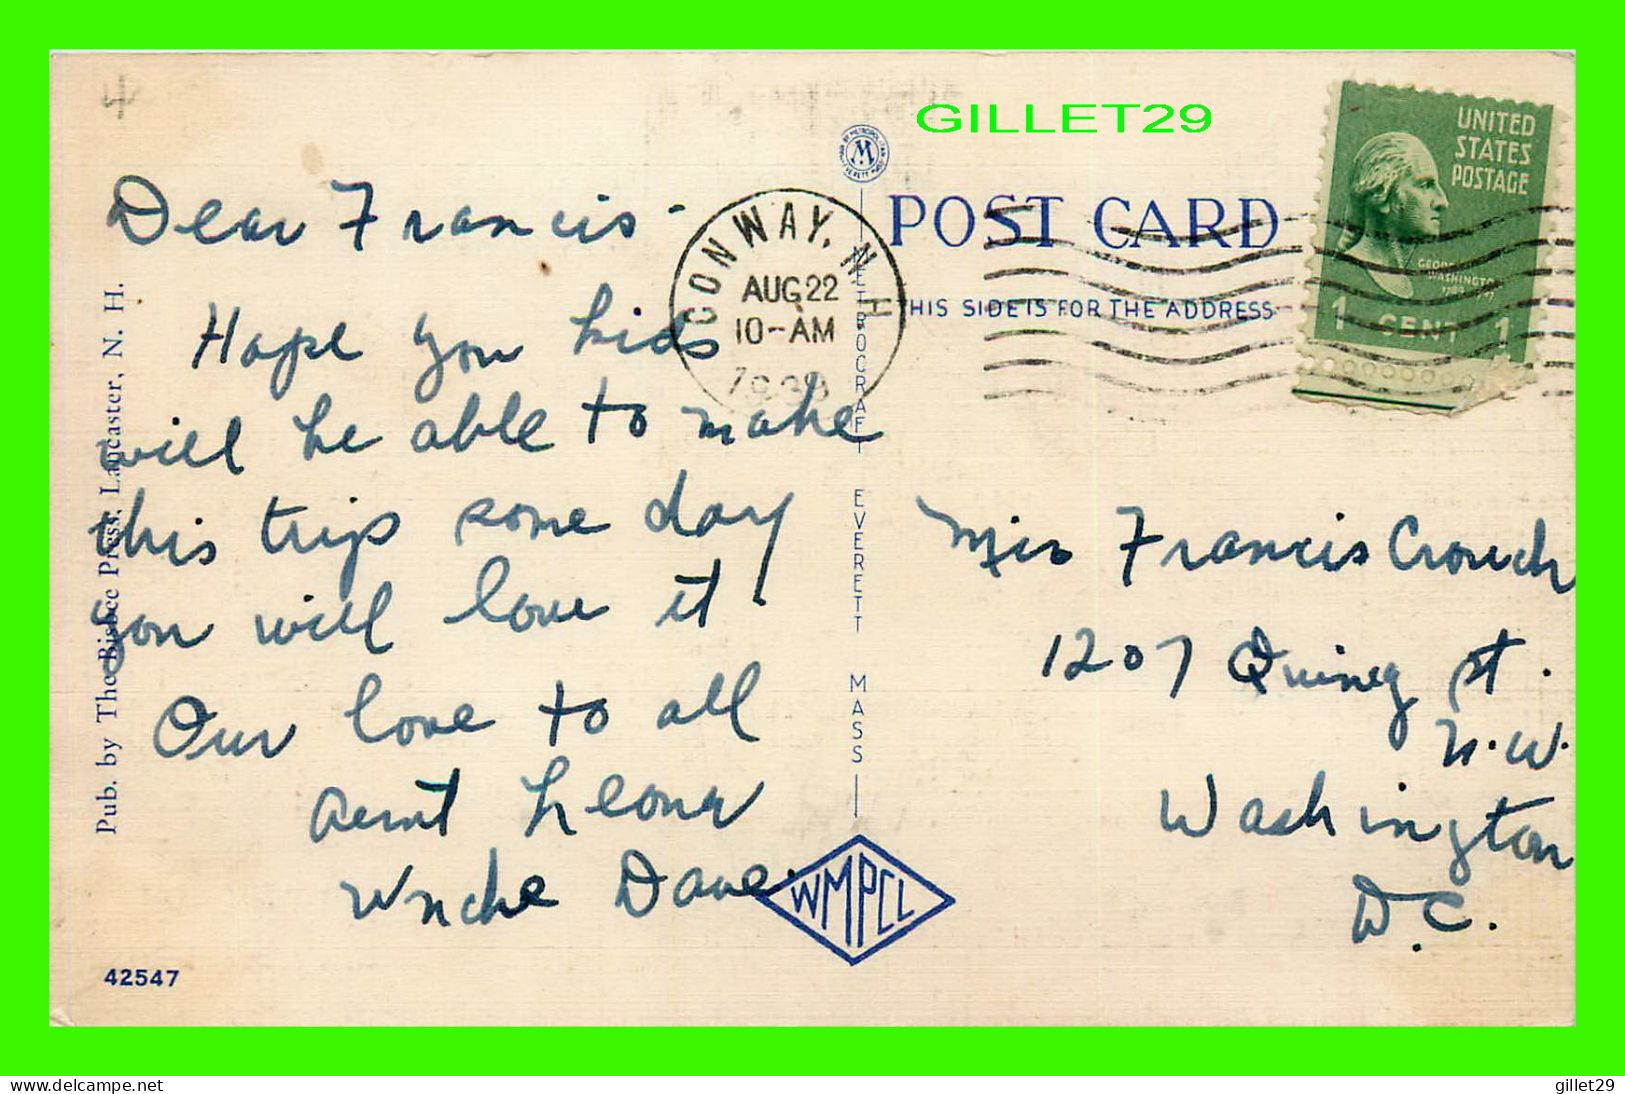 4
GILLET29
Dear Francis -
Hope you kids
will be able to make
this trip some day
you will love it.
Our love to all
Aunt Leona
Uncle Dave.
42547
Pub. by The Bisbee Press, Lancaster, N. H.
CONWAY, N. H.
AUG 22
10-AM
M
METROCRAFT EVERETT MASS
WMPCL
POST CARD
THIS SIDE IS FOR THE ADDRESS
UNITED
STATES
POSTAGE
GEORGE
WASHINGTON
1 CENT 1
Miss Francis Crouch
1207 Quincy St.
N.W.
Washington
D.C.
www.delcampe.net
gillet29